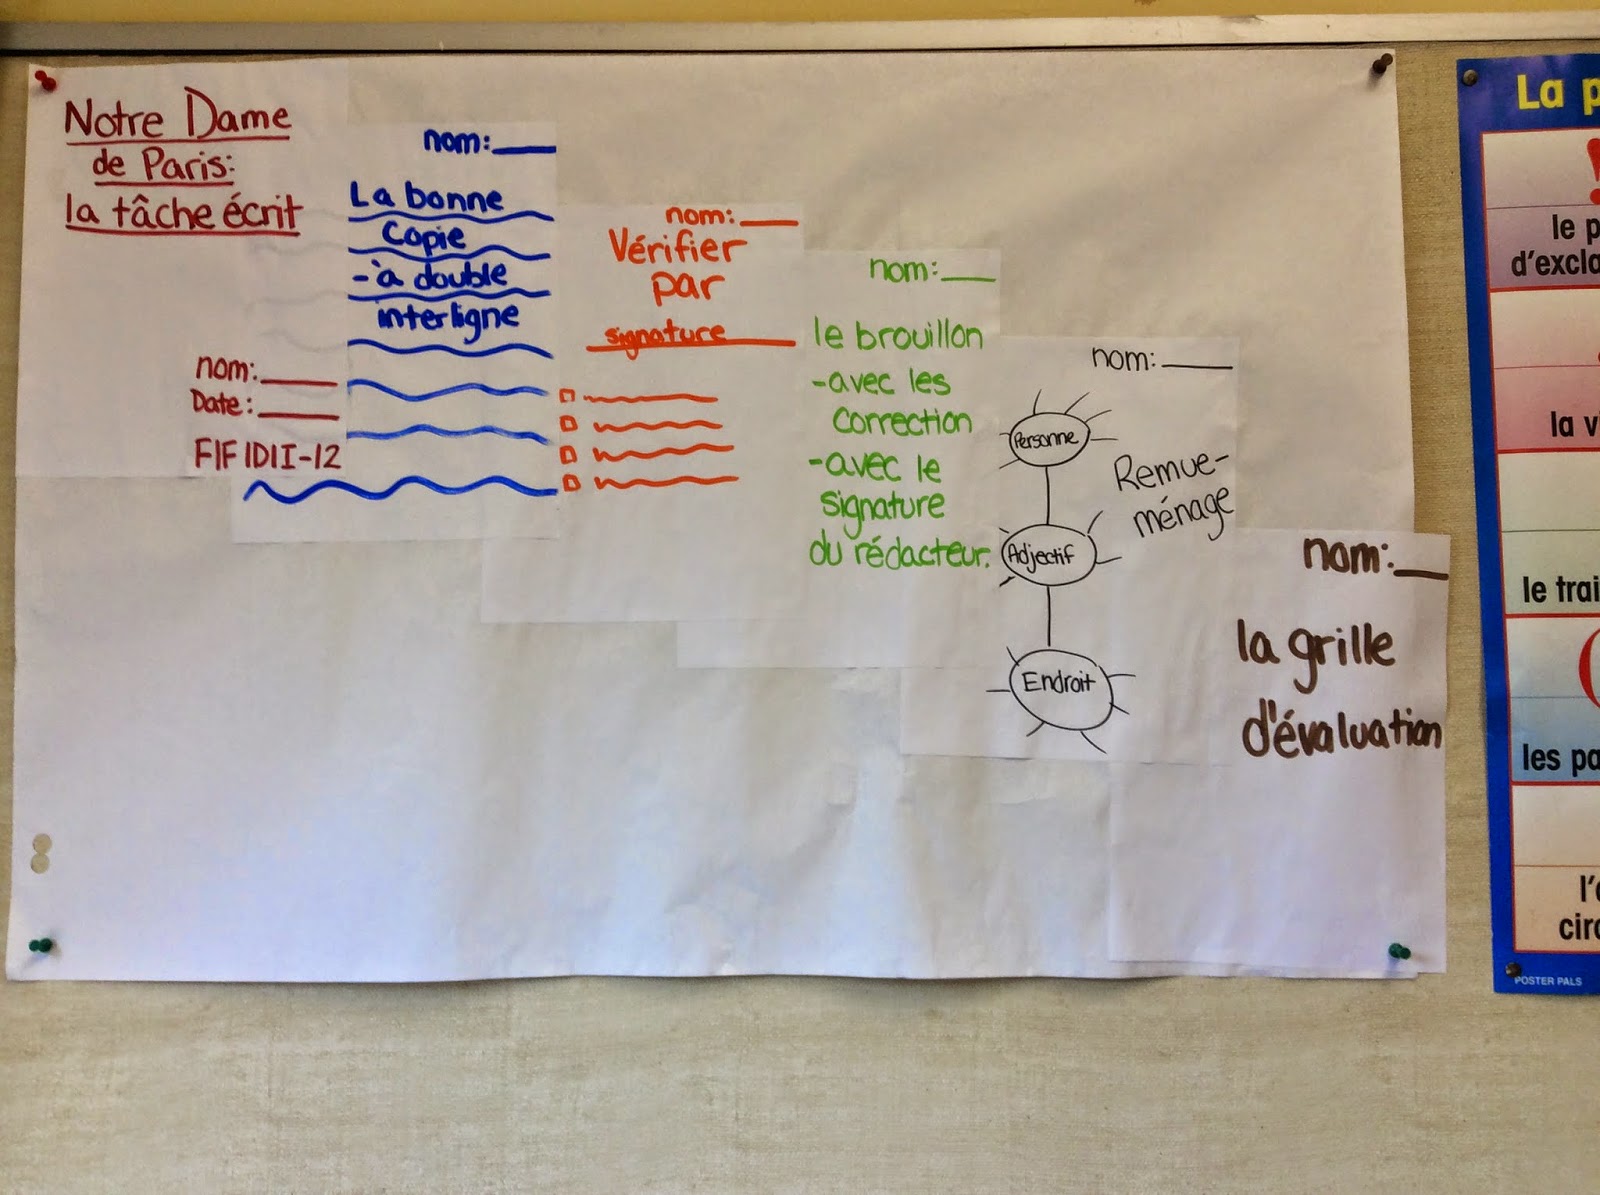 Notre Dame
de Paris:
la tâche écrit
nom:
Date:
FIF1D1I-12
nom:
La bonne
Copie
-à double
interligne
nom:
Vérifier
par
signature
nom:
le brouillon
-avec les
correction
-avec le
signature
du rédacteur.
nom:
Personne
Adjectif
Endroit
Remue-
ménage
nom:
la grille
d'évaluation
La p
!
le p
d'excla
la v
le trai
(
les pa
l'
circ
POSTER PALS